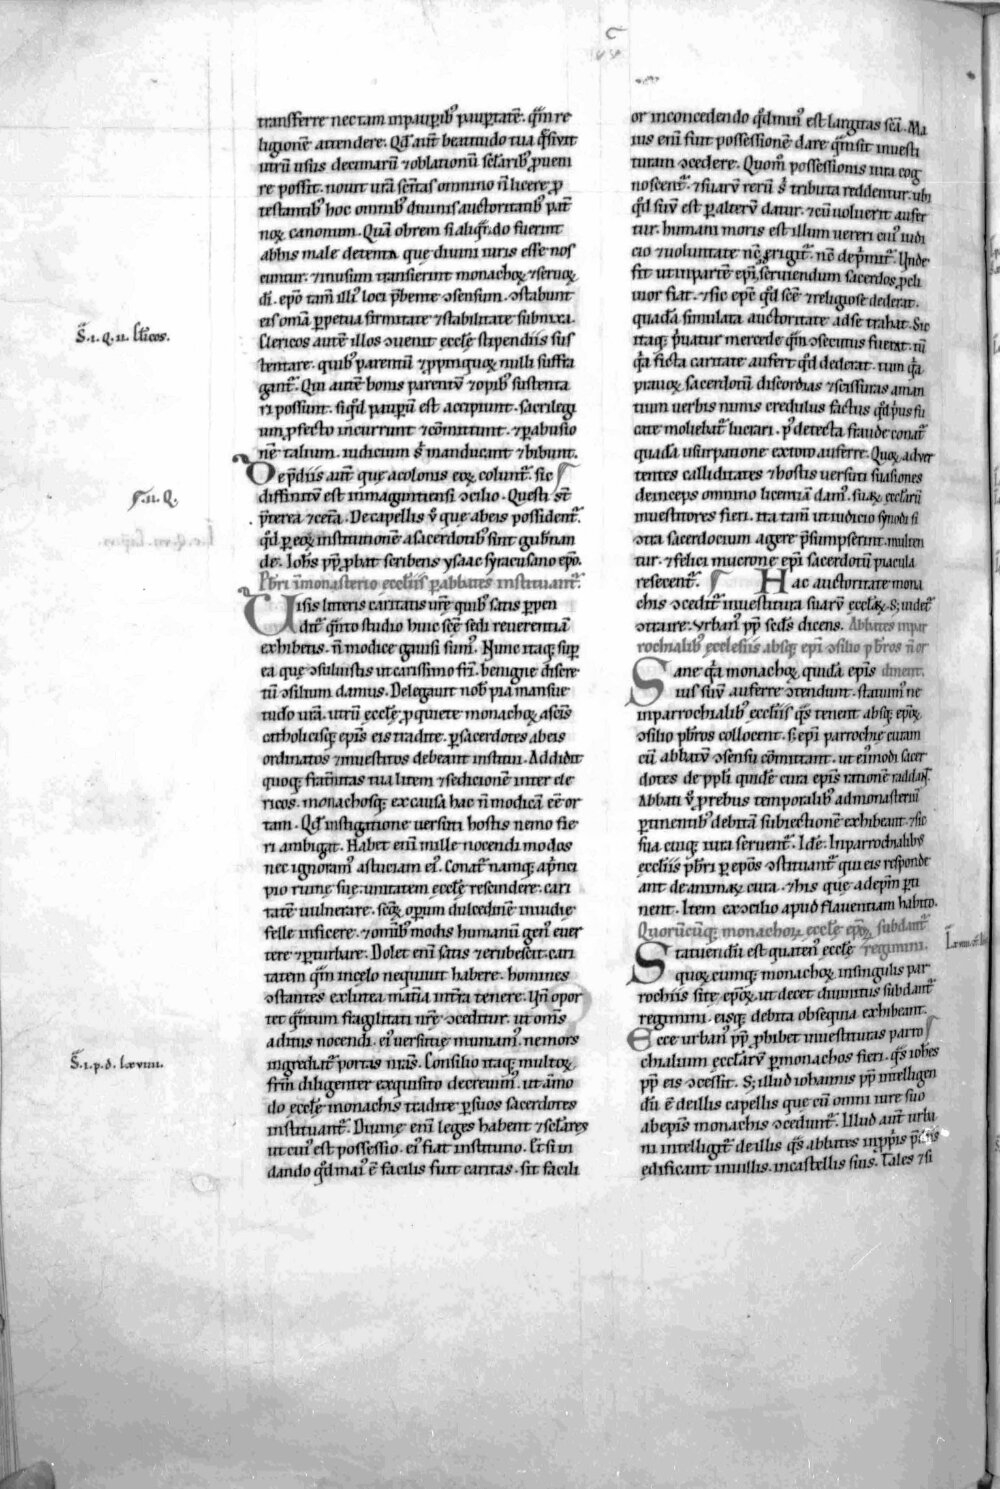 transferre nec tam inpauꝑib᷒ paup̱tatē. q̄m re
ligionē attendere. Qđ aut̄ beatitudo tua q̄siuit
utrū usus decimarū ⁊oblationū sclarib᷒ ꝓuem
re possit. nouit ur̄a sc̄itas omnino n̄ licere ꝓ
testantib᷒ hoc omnib᷒ diuinis auctoritatib᷒ pat̄
noꝝ canonum. Quā obrem si aliq̄n̄do fuerint
abbis male detenta que diuini iuris esse nos
cuntur. ⁊inusum transierint monachoꝝ ⁊seruoꝝ
di. ep̄o tam̄ illi᷒ loci p̄bente ↄsensum. ↄstabunt
eis om̄ia ꝑpetua firmitate ⁊stabilitate subnixa.
Clericos autē illos ↄuenit eccl̄ę stipendiis sus
tentare. quib᷒ parentū ⁊ꝓpinquoꝝ nulli suffra
gant᷑. Qui autē bonis parentū ⁊opib᷒ sustenta
ri possunt. siqđ pauꝑū est accipiunt. sacrilegi
um ꝓfecto incurrunt ⁊cōmittunt. ⁊ꝑabusio
nē talium. iudicium s᷒ manducant ⁊bibunt.
De p̄diis aut̄ que acolonis eoꝝ colunt᷑. sic
diffinitū est inmaguntiensi ↄcilio. Questi sт̄
p̄terea ⁊cet̄a. De capellis v̄ que abeis possident᷑.
qđ ꝑ eoꝝ institutionē asacerdotib᷒ sint gub̄nan
de. Ioh̄s pp̄ ꝓbat scribens ysaac syracusano ep̄o.
Pb̄ri inmonasterio eccl̄iis ꝑabbates instituant᷑.
Visis litteris caritatis ur̄ę quib᷒ satis ꝑpen
dit᷑ q̄nto studio huic sc̄ę sedi reuerentiā
exhibetis. n̄ modice gauisi sum᷒. Nunc itaqꝫ sup̄
ea que ↄsuluistis ut carissimo fr̄i. benigne discre
tū ↄsilium damus. Delegauit nob᷒ pia mansue
tudo ur̄a. utrū eccl̄ę ꝓ quiete monachoꝝ asc̄is
catholicisqꝫ ep̄is eis tradite. ꝑsacerdotes abeis
ordinatos ⁊inuestitos debeant institui. Addidit
quoqꝫ frat̄nitas tua litem ⁊sedicionē inter cle
ricos. monachosqꝫ ex causa hac n̄ modicā eē or
tam. Qđ instigatione uersuti hostis nemo fie
ri ambigat. Habet enī mille nocendi modos
nec ignoram᷒ astuciam ei᷒. Conat᷑ namqꝫ ap̄nci
pio ruine sue. unitatem eccl̄ę rescindere. cari
tatē uulnerare. sc̄oꝝ opum dulcedinē inuidie
felle inficere. ⁊omib᷒ modis humanū gen᷒ euer
tere ⁊ꝑturbare. Dolet enī satis ⁊erubescit. cari
tatem q̄m incelo nequiuit habere. homines
ↄstantes exlutea mat̄ia inтr̄a tenere. Vn̄ opor
tet q̄ntum fragilitati nr̄ę ↄceditur. ut om̄s
aditus nocendi. ei᷒ uersutię muniam᷒. ne mors
ingrediat᷑ portas nr̄as. Consilio itaqꝫ multoꝝ
fr̄m diligenter exquisito decreuim᷒. ut ām̄o
do eccl̄ę monachis tradite ꝑsuos sacerdotes
instituant᷑. Diuine enī leges habent ⁊sclares
ut cui᷒ est possessio. ei᷒ fiat institutio. Et si in
dando qđ mai᷒ ē facilis fuit caritas. sit facili
or inconcedendo qđ min᷒ est largitas sc̄a. Ma
ius enī fuit possessionē dare q̄m sit inuesti
turam ↄcedere. Quom᷒ possessionis iura cog
noscent᷑. ⁊suaꝝ rerū s᷒ tributa reddentur. ubi
qđ suū est ꝑalterū datur. ⁊cū uoluerit aufer
tur. humani moris est illum uereri cui᷒ iudi
cio ⁊uoluntate nc̄ erigit᷑. nc̄ dep̄mit᷑. Vnde
fit ut inpartē ep̄i seruiendum sacerdos ꝓcli
uior fiat. ⁊sic ep̄e qđ sc̄e ⁊religiose dederat.
quadā simulata auctoritate adse trahat. Sic
itaqꝫ p̄uatur mercede q̄m ↄsecutus fuerat. tū
q̄a ficta caritate aufert qđ dederat. tum q̄a
prauoꝝ sacerdotū discordias ⁊scissuras aman
tium uerbis nimis credulus factus qđ p̄us fu
cate moliebat᷑ lucrari. p᷒ detecta fraude conat᷑
quadā usurpatione extoto auferre. Quoꝝ aduer
tentes calliditates ⁊hostis uersuti suasiones
deinceps omnino licentiā dam᷒. suaꝝ eccl̄arū
inuestitores fieri. ita tam̄ ut iudicio synodi si
ↄтra sacerdocium agere p̄sumpserint. multen
tur. ⁊felici mucrone ep̄i sacerdotū piacula
resecent᷑. Hac auctoritate mona
chis ↄcedit᷑ inuestitura suarū eccl̄aꝝ. Sꝫ uidet᷑
ↄtraire. Vrban᷒ pp̄ sed̄s dicens. Abbates inpar
rochialib᷒ ecclesiis absqꝫ ep̄i ↄsilio pb̄ros n̄ or
dinent.
Sane q̄a monachoꝝ quidā ep̄is
ius suū auferre ↄtendunt. statuim᷒ ne
inparrochialib᷒ eccl̄iis q̄s tenent absqꝫ ep̄oꝝ
ↄsilio pb̄ros collocent. sꝫ ep̄i parrochię curam
cū abbatū ↄsensu cōmittant. ut ei᷒modi sacer
dotes de ppl̄i quidē cura ep̄is rationē reddant.
Abbati v̄ p̄rebus temporalib᷒ admonasteriū
ꝑtinentib᷒ debitā subiectionē exhibeant. ⁊sic
sua cuiqꝫ iura seruent᷑. Idē. Inparrochialibus
eccl̄iis pb̄ri ꝑ ep̄os ↄstituant᷑ qui eis responde
ant deanimaꝝ cura. ⁊his que adep̄m ꝑti
nent. Item exↄcilio apud flauentiam habito.
Quorūcūqꝫ monachoꝝ eccl̄ę ep̄oꝝ subdant᷑
regimini.
Statuendū est quaten᷒ eccl̄ę
quoꝝcumqꝫ monachoꝝ insingulis par
rochiis sitę ep̄oꝝ ut decet diuinitus subdant᷑
regimini. eisqꝫ debita obsequia exhibeant.
Ecce urban᷒ pp̄ ꝓhibet inuestituras parro
chialium eccl̄arū ꝑmonachos fieri. q̄s ioh̄es
pp̄ eis ↄcessit. Sꝫ illud iohannis pp̄ intelligen
dū ē deillis capellis que cū omni iure suo
abep̄is monachis ↄcedunt᷑. Illud aut̄ urba
ni intelligit᷑ deillis q̄s abbates inpp̄is p̄diis
edificant inuillis. incastellis suis. Tales ⁊si
S̄.1.Q.11. Cl̄icos.
S̄.1.p.d. lxviii.